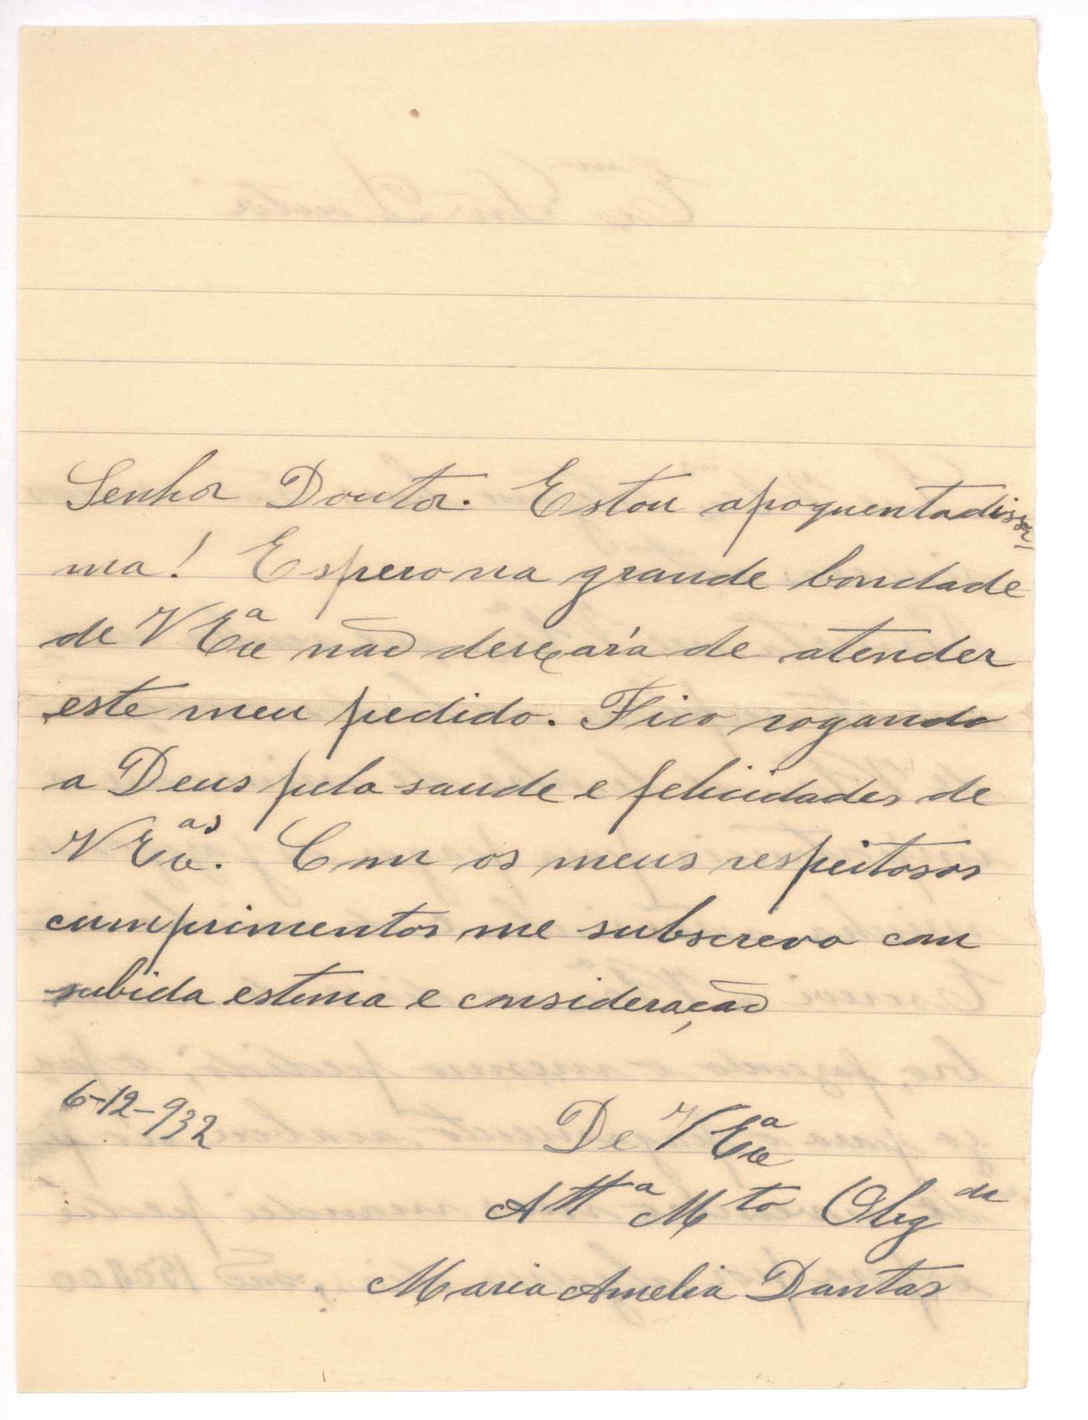 Senhor Doutor. Estou apoquentadissi-
ma! Espero na grande bondade
de V Exª não deixará de atender
este meu pedido. Fico rogando
a Deus pela saude e felicidades de
V Exas. Com os meus respeitosos
cumprimentos me subscrevo com
subida estima e consideração
6-12-932
De V Exª
Attª Mto Obrgda
Maria Amelia Dantas